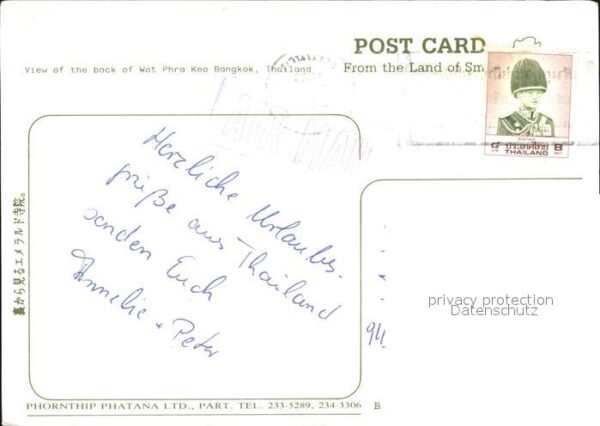 POST CARD
View of the back of Wat Phra Keo Bangkok, Thailand
From the Land of Sm
AIR MAIL
ประเทศไทย
THAILAND
8
裏から見るエメラルド寺院。
Herzliche Urlaubs-
grüße aus Thailand
senden Euch
Annelie + Peter
94.
privacy protection
Datenschutz
PHORNTHIP PHATANA LTD., PART. TEL. 233-5289, 234-3306 B